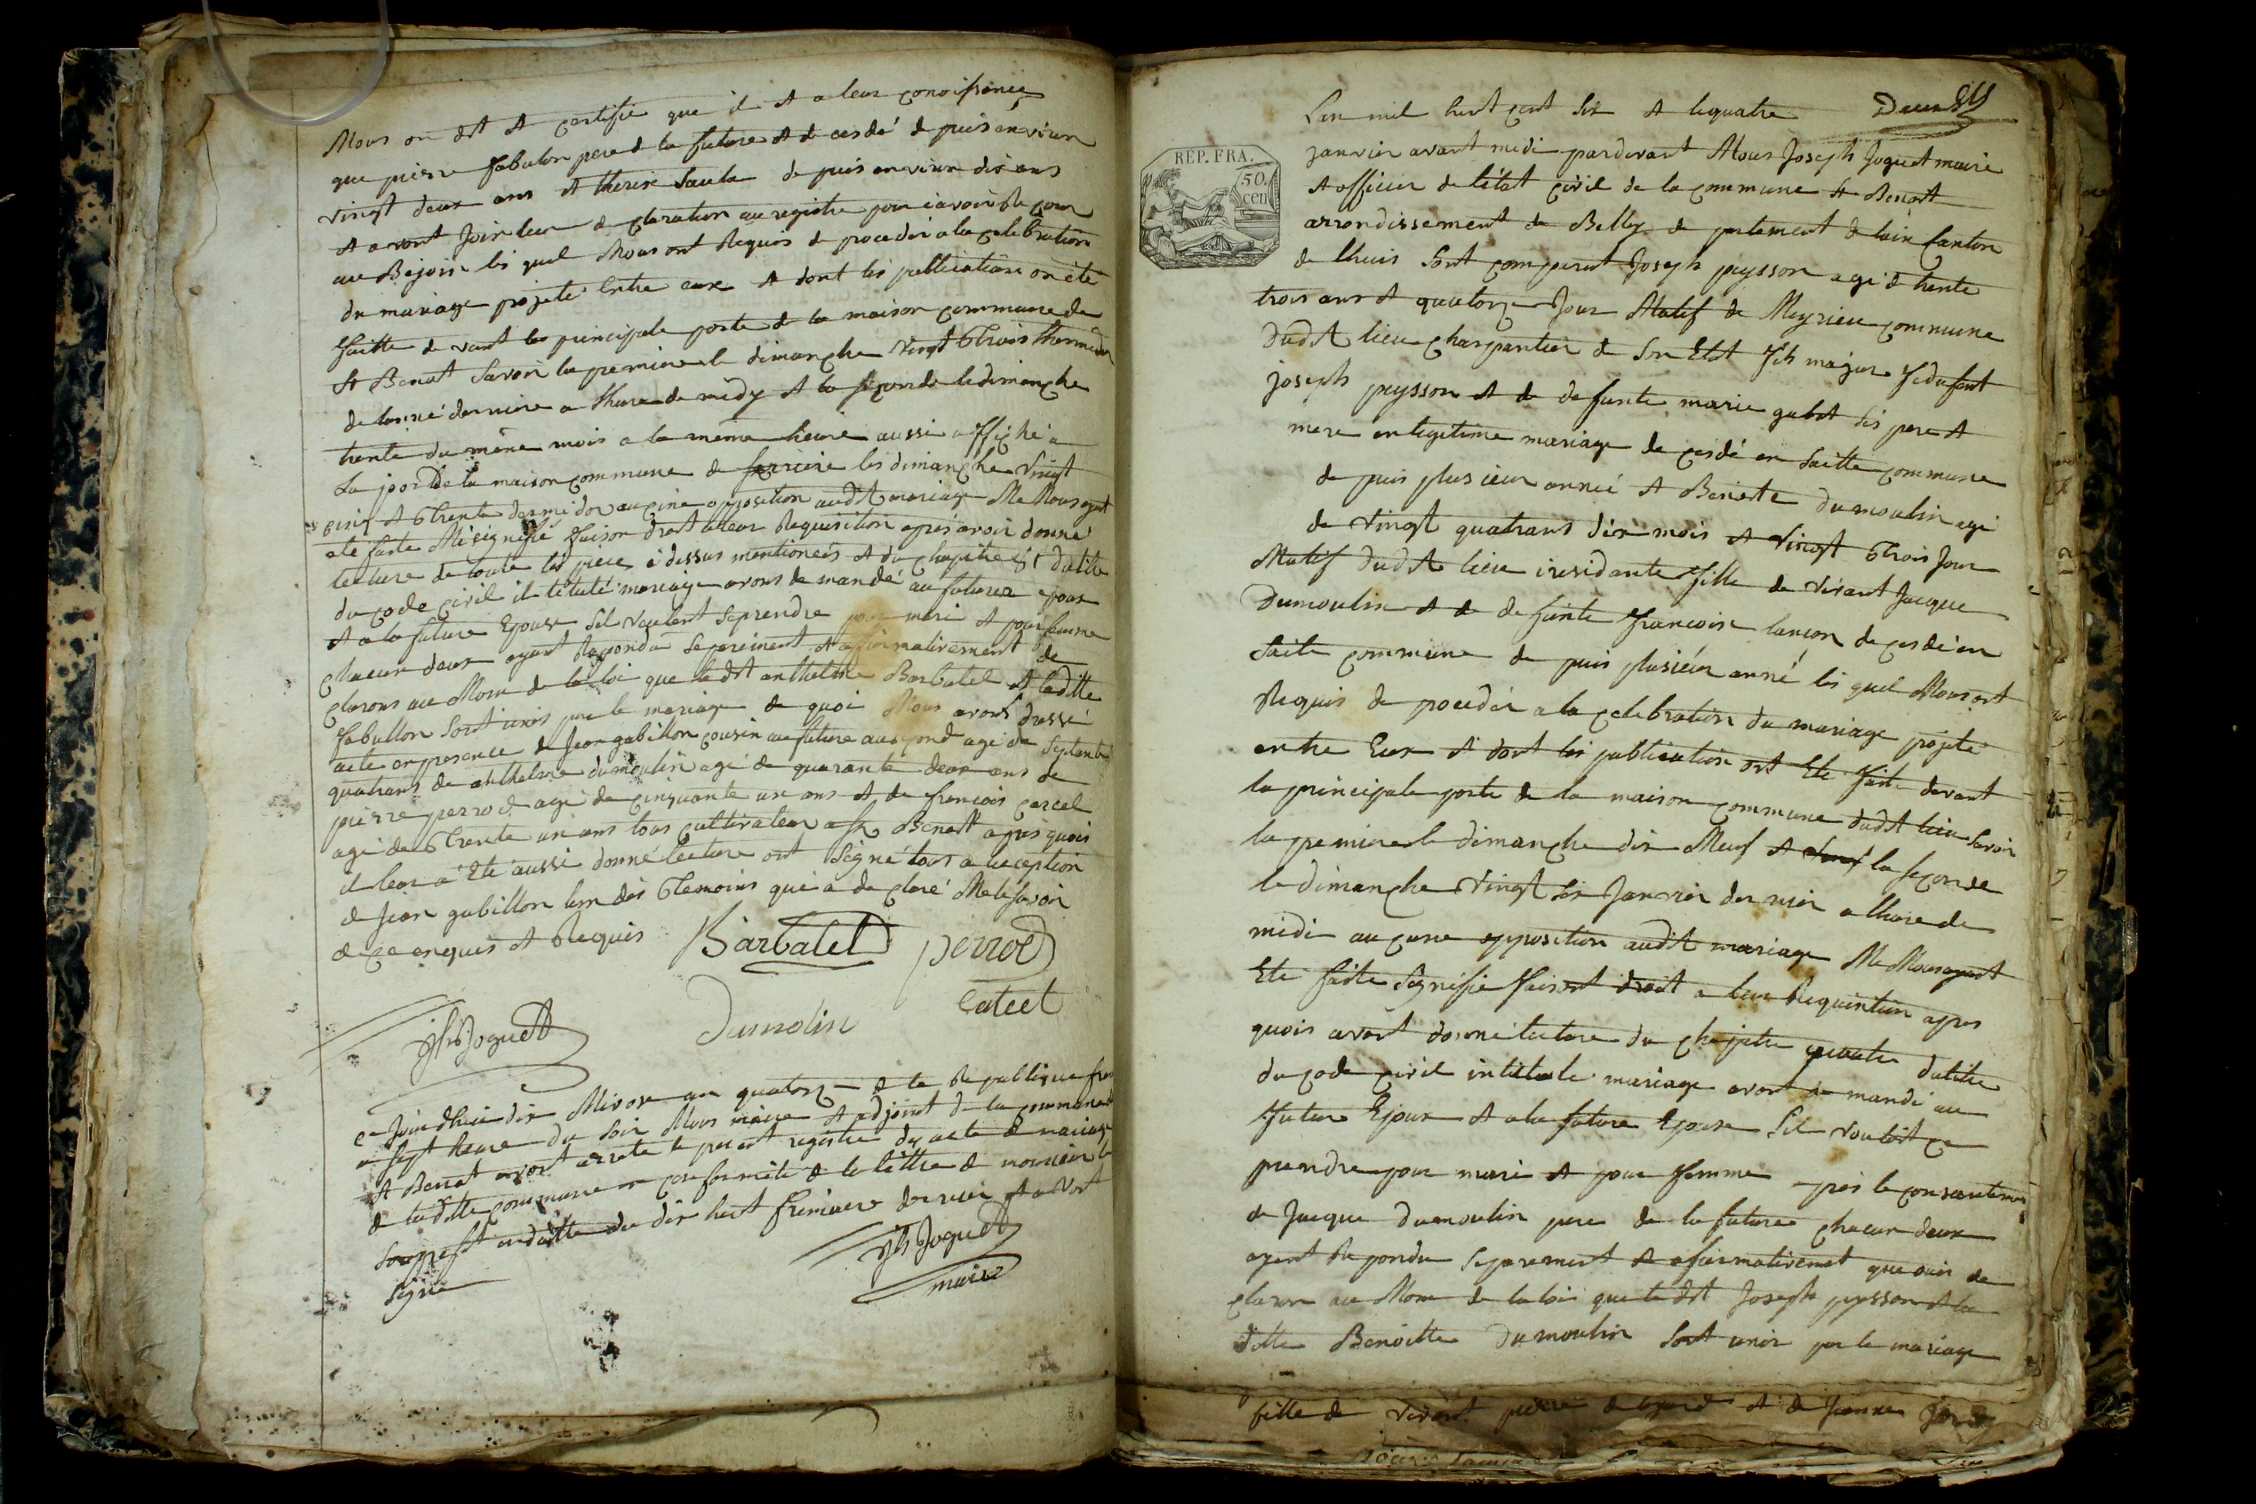 Nous on dit et certifie que il et a leur
que pierre fabulon pere d la future et de cesdé de puis environ
vingt deux ans et therese de puis environ dix ans
et avont leur de claration au registre pour
au Bejoin les quel Nous ont Requis de proceder a la celebration
du mariage projeté Entre eux et dont les publication on été
faitte de vant la principale porte de la maison commune de
St Benoit Savoir la premiere le dimanche vingt trois thermidor
de lanné derniere a lhure de midy et la seconde le dimanche
trente du même mois a la même heure aussi affiché a
la porte de la maison commune de les dimanche vingt
et trente opposition audit mariage Ne Nous ayant
eté faite Ni signifié faison droit a leur Requisition apres avoir donné
lecture de toute les piece i dessus mentionées et du chapitre du titre
du code civil intitulé mariage avons de mandé au future epoux
et a la future Epouse Sil veulent se prendre pour mari et pour femme
chacun deux ayant Repondu Separement et affirmativement de
clarons au Nom de la loi que le dit anthelme Barbatel et ladite
fabullon Sont unis par le mariage de quoi Nous avons dressé
acte en presence de Jean gabillon cousin au future agé de Septante
quatrans de anthelme dumoulin agé de quarante deux ans de
pierre perrod agé de cinquante un ans et de francois carcel
agé de trente un ans tous cultivateur a St Benoit apres quoi
il leur a Eté aussi donné lecture ont Signé tous a lexception
de Jean gabillon lun des temoins qui a de claré Ne le savoir
de ce enquis et Requis
Barbatel perrod
Dumolin
jph Joguet
ce Jourdhui dix Nivose an quatorze de la Republique
a sept heure du soir Nous maire et adjoint de la commune de
St Benoit avont arreté le present registre du acte de mariage
de la ditte commune en conformité de la lettre de monsieur le
en datte du dix huit frimaire dernier et avont
Signé
jph Joguet
maire
REP. FRA.
50.
cen
Lan mil huit cent Six et le quatre
janvier avant midi pardevant Nous Joseph Joguet maire
et officier de letat civil de la commune St Benoit
arrondissement de Belley de partement de lain Canton
de lhuis Sont comparut Joseph peysson agé d trente
trois ans et quatorze Jour Natif de Meyrieu commune
dudit lieu charpantier de Son Etat fils majeur
joseph peysson et de de funte marie gabet ses pere et
mere en legitime mariage de cesdé en laitte commune
de puis plusieur année et Benoite dumoulin agé
de vingt quatrans dix mois et vingt trois Jour
Natif dudit lieu i residante fille de vivant Jacque
Dumoulin et de de funte francoise lancon de cesdé en
laite commune de puis plusieur anné les quel Nous ont
Requis de proceder a la celebration du mariage projeté
entre Eux et dont les publication ont Eté faite devant
la principale porte de la maison commune dudit lieu Savoir
la premiere le dimanche dix Neuf et la seconde
le dimanche vingt six Janvier dernier a lhure de
midi aucune opposition audit mariage Ne Nous ayant
Eté faite Signifie faisont droit a leur Requisition apres
quoi avont donné lecture du chapitre du titre
du code civil intitulé mariage avont de mandé au
future Epoux et a la future Epouse Sil vouloit ce
prendre pour mari et pour femme pres le consantemen
de Jacque dumoulin pere de la future chacun deux
ayant Repondu Separement et afirmativement que oui de
claron au Nom de la loi que le dit Joseph peysson et la
ditte Benoitte Dumoulin Sont unis par le mariage
fille de vivant pierre et de Jeanne